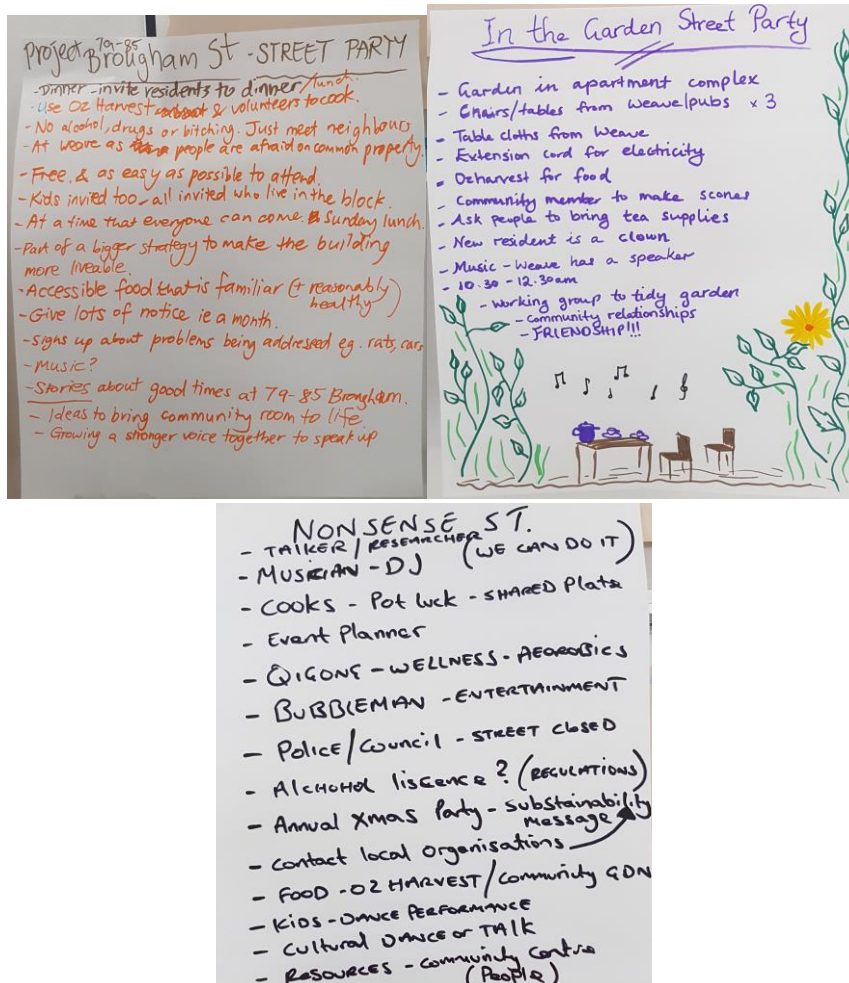 Project 79-85 Brougham St - STREET PARTY
- Dinner - invite residents to dinner/lunch.
- Use Oz Harvest & volunteers to cook.
- No alcohol, drugs or bitching. Just meet neighbours
- At weave as people are afraid on common property.
- Free & as easy as possible to attend.
- Kids invied too - all invited who live in the block.
- At a time that everyone can come. Sunday lunch.
- Part of a bigger strategy to make the building
more liveable.
- Accessible food that is familiar (+ reasonably
healthy)
- Give lots of notice ie a month.
- Signs up about problems being addressed eg. rats, cars
- Music?
- Stories about good times at 79-85 Brougham.
- Ideas to bring community room to life
- Growing a stronger voice together to speak up
In the Garden Street Party
- Garden in apartment complex
- Chairs/tables from Weave/pubs x 3
- Table cloths from Weave
- Extension cord for electricity
- Ozharvest for food
- Community member to make scones
- Ask people to bring tea supplies
- New resident is a clown
- Music - Weave has a speaker
- 10.30 - 12.30am
- Working group to tidy garden
- Community relationships
- FRIENDSHIP!!!
NONSENSE ST.
- TALKER/RESEARCHER (WE CAN DO IT)
- MUSICIAN - DJ
- COOKS - Pot luck - SHARED Plate
- Event Planner
- QIGONG - WELLNESS - AEOROBICS
- BUBBLEMAN - ENTERTAINMENT
- Police/Council - STREET CLOSED
- Alchohol liscence? (REGULATIONS)
- Annual Xmas Party - Substainability
message
- Contact local organisations
- FOOD - OZ HARVEST/Community GDN
- KIDS - DANCE PERFORMANCE
- Cultural DANCE or TALK
- RESOURCES - Community Centre
(People)